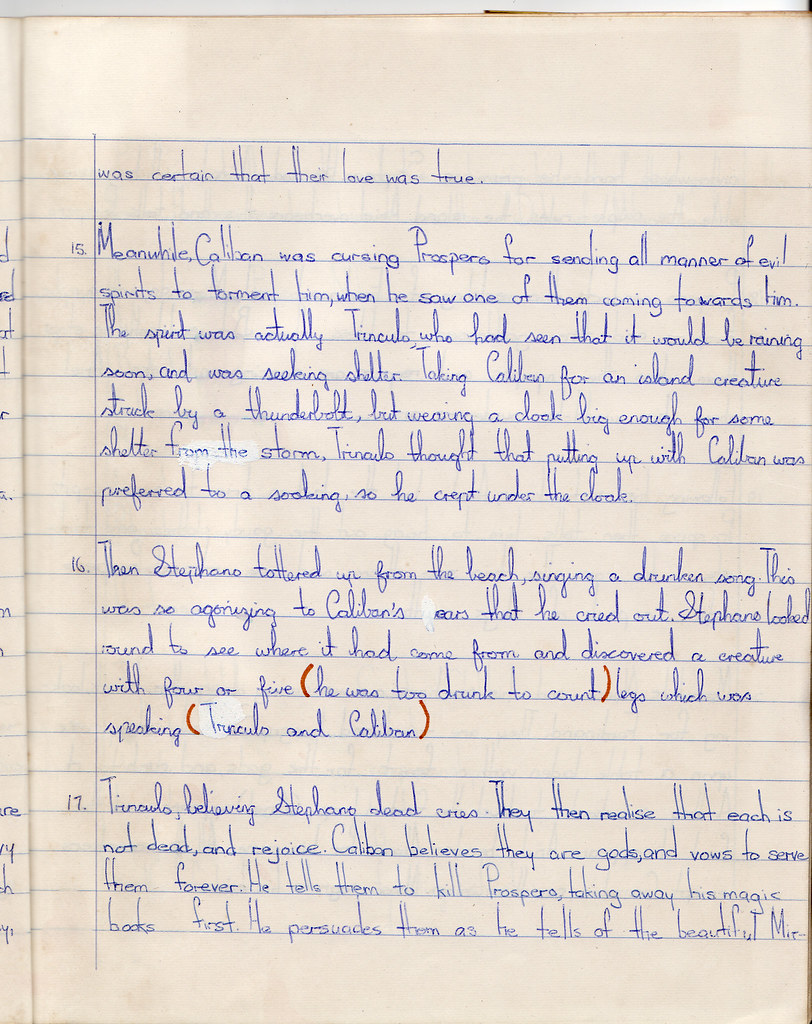 was certain that their love was true.
15. Meanwhile, Caliban was cursing Prospero for sending all manner of evil
spirits to torment him, when he saw one of them coming towards him.
The spirit was actually Trinculo, who had seen that it would be raining
soon, and was seeking shelter. Taking Caliban for an island creature
struck by a thunderbolt, but wearing a cloak big enough for some
shelter from the storm, Trinculo thought that putting up with Caliban was
preferred to a soaking, so he crept under the cloak.
16. Then Stephano tottered up from the beach, singing a drunken song. This
was so agonizing to Caliban's ears that he cried out. Stephano looked
round to see where it had come from and discovered a creature
with four or five (he was too drunk to count) legs which was
speaking (Trinculo and Caliban)
17. Trinculo, believing Stephano dead cries. They then realise that each is
not dead, and rejoice. Caliban believes they are gods, and vows to serve
them forever. He tells them to kill Prospero, taking away his magic
books first. He persuades them as he tells of the beautiful Mir-